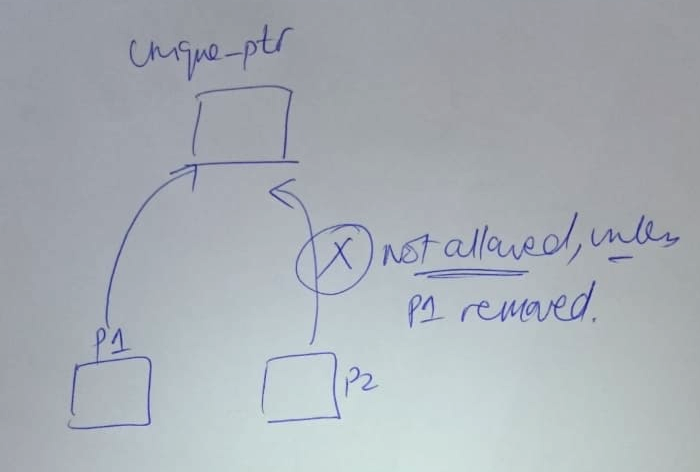 Unique_ptr
X not allowed, unless
P1 removed.
P1
P2